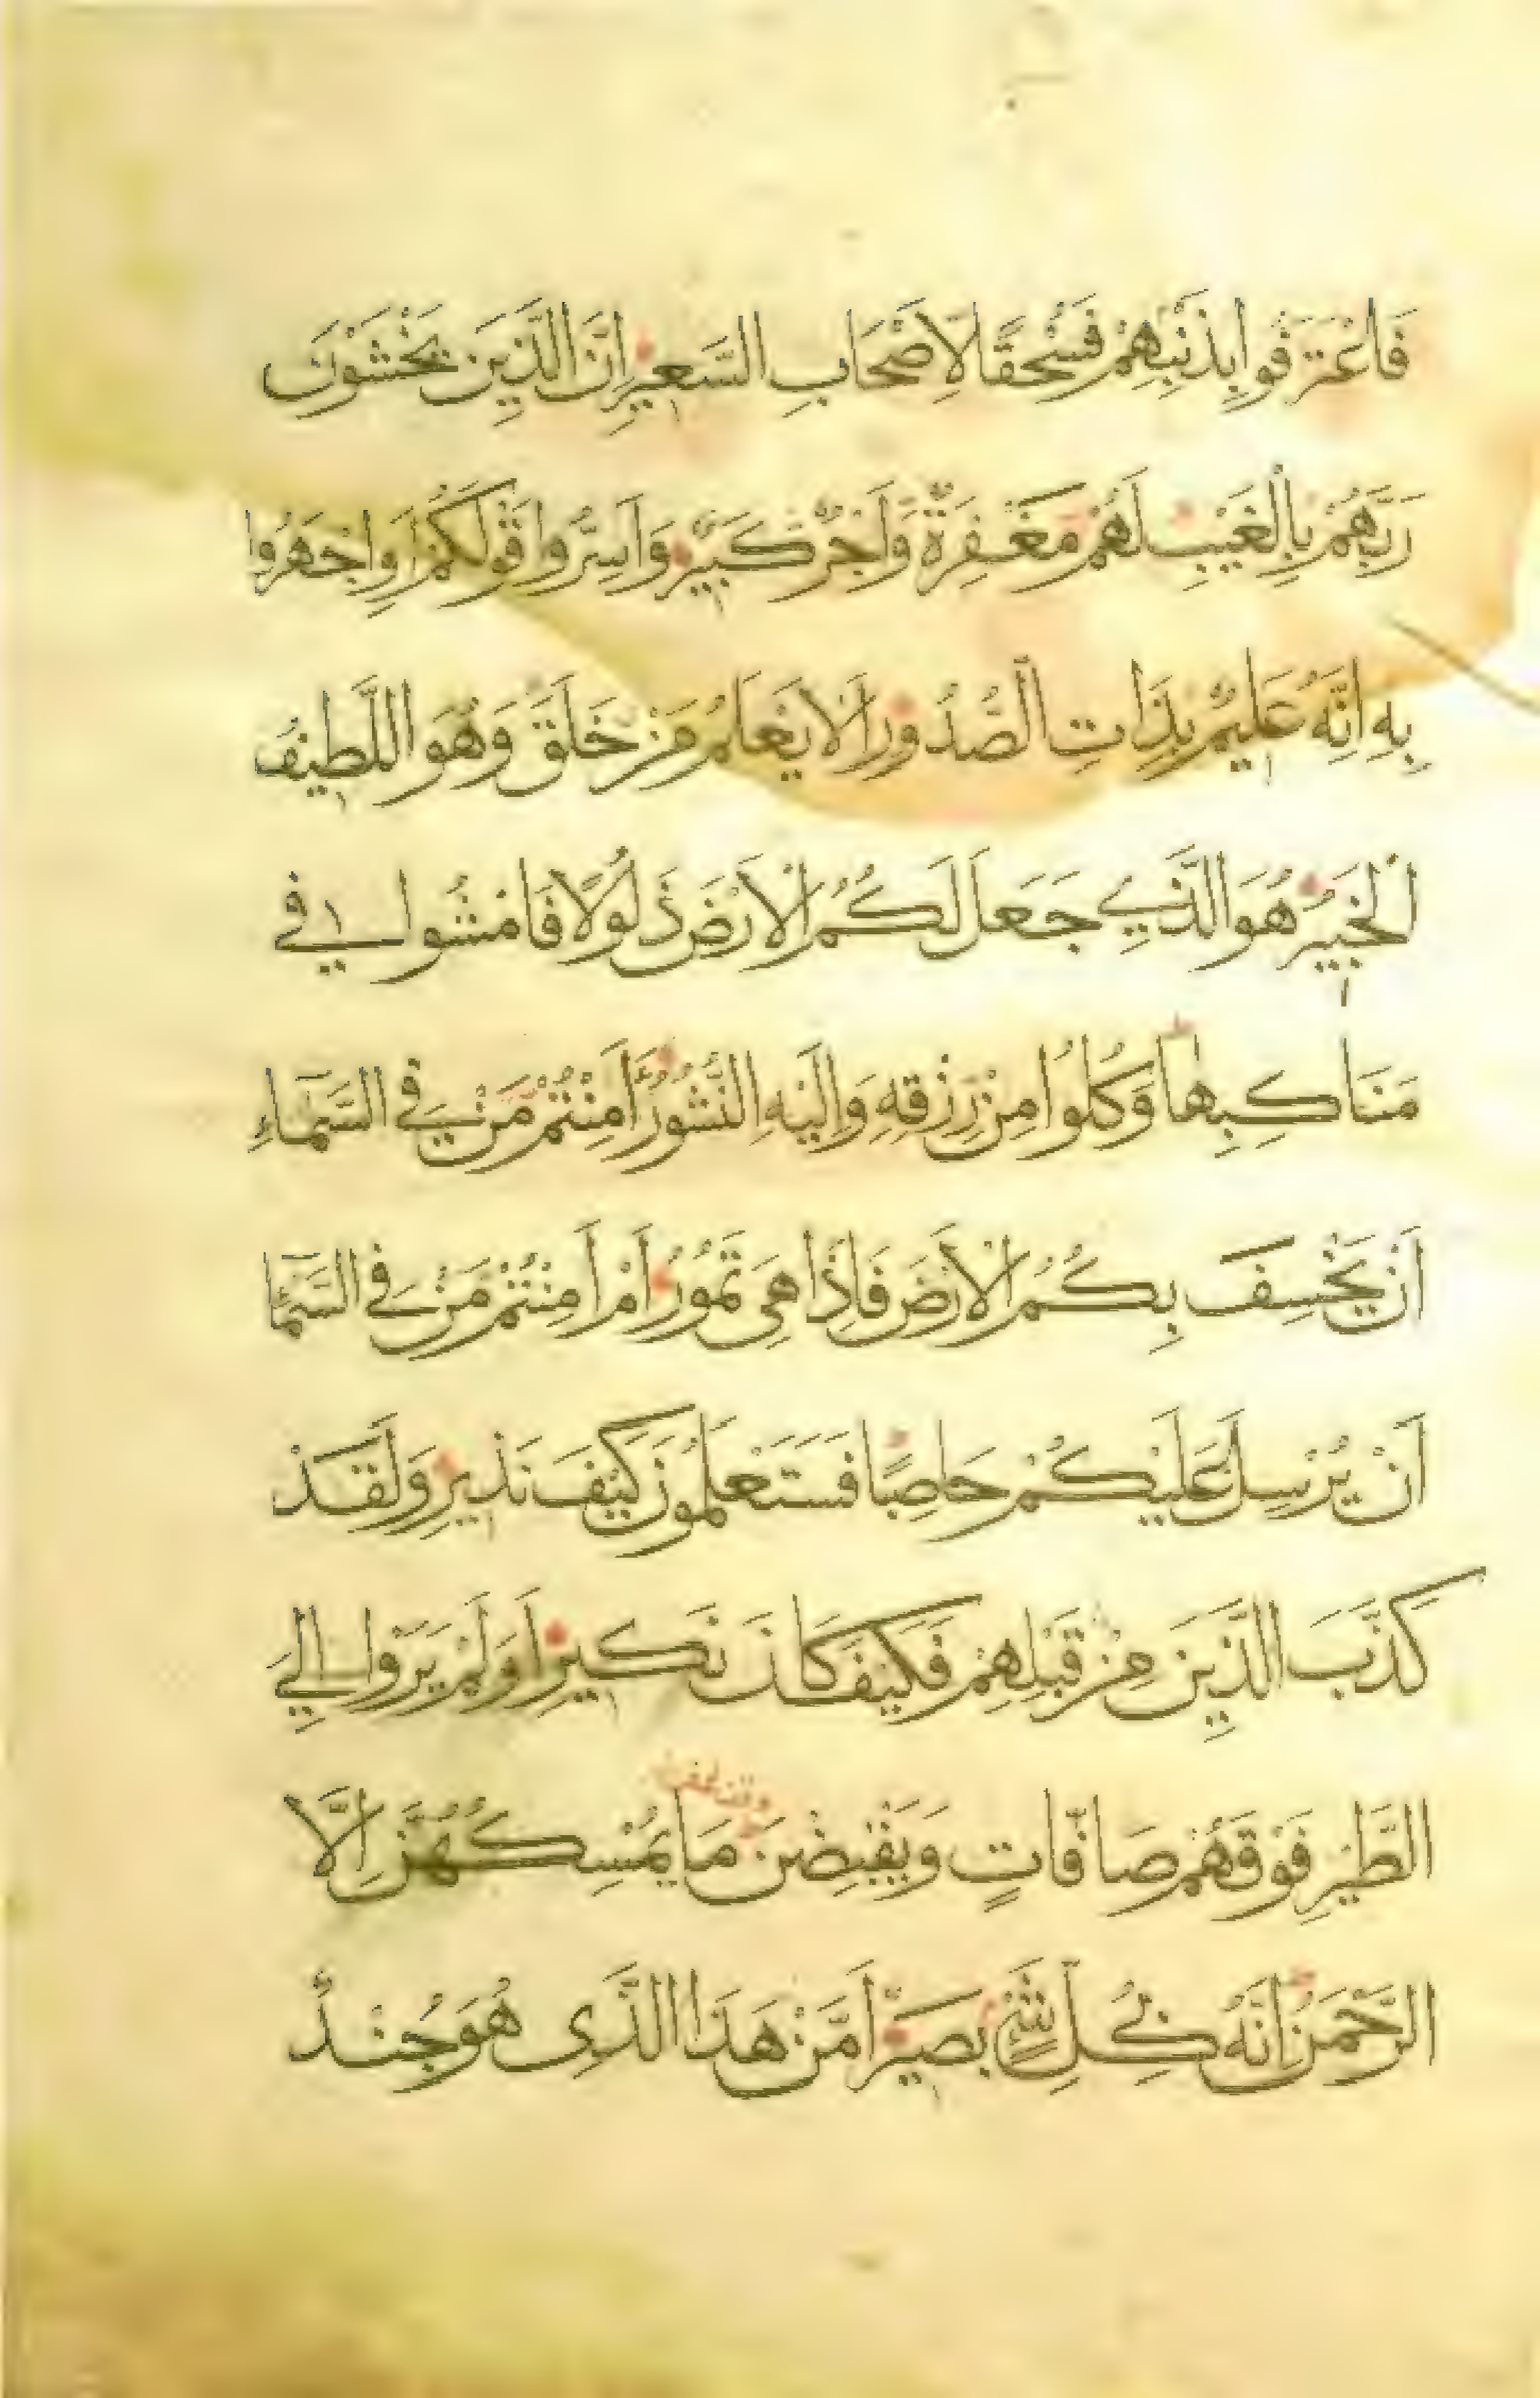 فَاعْتَرَفُوا بِذَنْبِهِمْ فَسُحْقًا لِاَصْحَابِ السَّعِيرِ اِنَّ الَّذِينَ يَخْشَوْنَ
رَبَّهُمْ بِالْغَيْبِ لَهُمْ مَغْفِرَةٌ وَاَجْرٌ كَبِيرٌ وَاَسِرُّوا قَوْلَكُمْ اَوِاجْهَرُوا
بِهِ اِنَّهُ عَلِيمٌ بِذَاتِ الصُّدُورِ اَلَا يَعْلَمُ مَنْ خَلَقَ وَهُوَ اللَّطِيفُ
الْخَبِيرُ هُوَ الَّذِي جَعَلَ لَكُمُ الْاَرْضَ ذَلُولًا فَامْشُوا فِي
مَنَاكِبِهَا وَكُلُوا مِنْ رِزْقِهِ وَاِلَيْهِ النُّشُورُ ءَاَمِنْتُمْ مَنْ فِي السَّمَاءِ
اَنْ يَخْسِفَ بِكُمُ الْاَرْضَ فَاِذَا هِيَ تَمُورُ اَمْ اَمِنْتُمْ مَنْ فِي السَّمَاءِ
اَنْ يُرْسِلَ عَلَيْكُمْ حَاصِبًا فَسَتَعْلَمُونَ كَيْفَ نَذِيرِ وَلَقَدْ
كَذَّبَ الَّذِينَ مِنْ قَبْلِهِمْ فَكَيْفَ كَانَ نَكِيرِ اَوَلَمْ يَرَوْا اِلَى
الطَّيْرِ فَوْقَهُمْ صَافَّاتٍ وَيَقْبِضْنَ مَا يُمْسِكُهُنَّ اِلَّا
الرَّحْمَنُ اِنَّهُ بِكُلِّ شَيْءٍ بَصِيرٌ اَمَّنْ هَذَا الَّذِي هُوَ جُنْدٌ